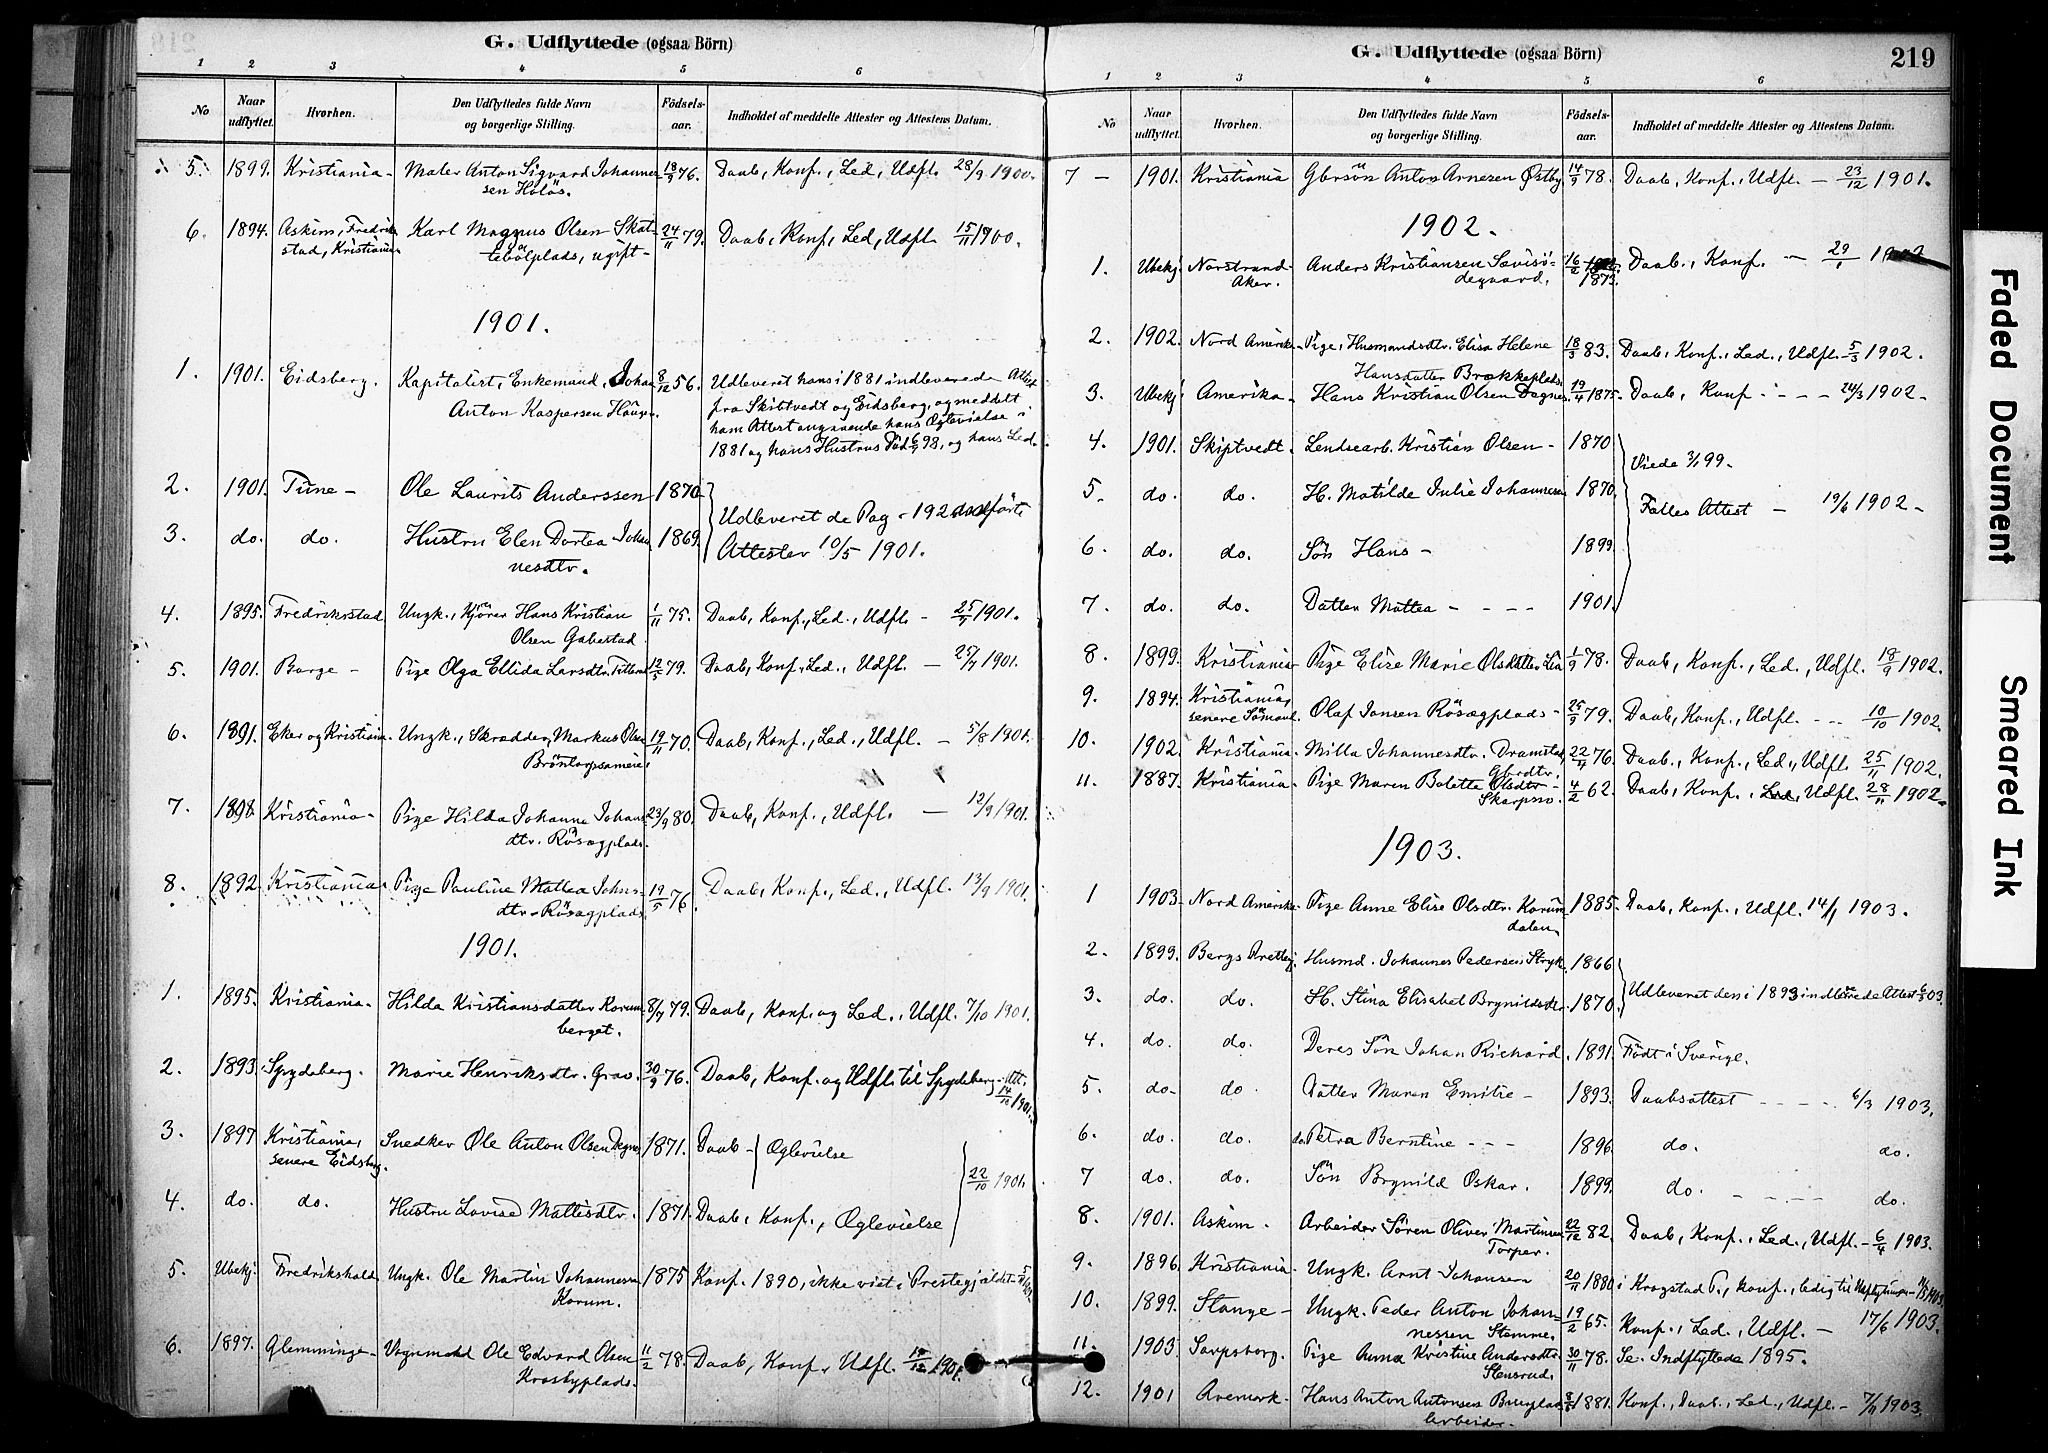 G. Udflyttede (ogsaa Börn)
1 2 3 4 5 6
No
Naar udflyttet.
Hvorhen.
Den Udflyttedes fulde Navn og borgerlige Stilling.
Födsels-aar.
Indholdet af meddelte Attester og Attestens Datum.
5. 1899. Kristiania - Maler Anton Sigvard Johannes- 18/9 76. Daab, Konf., Led., Udfl. 28/9 1900.
sen Holös.
6. 1894. Askim, Fredrik- Karl Magnus Olsen Skat- 24/11 79. Daab, Konf., Led., Udfl. 15/11 1900.
stad, Kristiania tebölplads, ugift -
1901.
1. 1901. Eidsberg. Kapitalist, Enkemand, Johan 8/12 56. Udleveret hans i 1881 indleverede Attest
Anton Kaspersen Haugen fra Skibtvedt og Eidsberg, og meddelt
ham Attest angaaende hans Ægtevielse i
1881 og hans Hustrus Död 98, og hans Led.
2. 1901. Tune - Ole Laurits Anderssen 1870
Udleveret de Pag. 192 anförte
3. do. do. Hustru Elen Dortea Johan- 1869. Attester 10/5 1901.
nesdtr.
4. 1895. Fredrikstad Ungk., Kjörer Hans Kristian 1/11 75. Daab, Konf., Led., Udfl. - 25/ 1901.
Olsen Gabestad
5. 1901. Borge - Pige Olga Ellida Larsdtr. 12/5 79. Daab, Konf., Led., Udfl. - 27/7 1901.
6. 1891. Eker og Kristiania. Ungk., Skrædder, Markus Olsen 19/11 70. Daab, Konf., Led., Udfl. - 5/8 1901.
7. 1898 Kristiania - Pige Hilda Johanne Johans- 23/9 80. Daab, Konf., Udfl. - 12/9 1901.
dtr. Rösægplads.
8. 1892 Kristiania. Pige Pauline Mattea Johns- 19/5 76. Daab, Konf., Led., Udfl. 13/9 1901.
dtr. Rösægplads
1901.
1. 1895. Kristiania. Hilda Kristiansdatter Korum- 8/7 79. Daab, Konf. og Led., Udfl. 7/10 1901.
berget.
2. 1893. Spydeberg. Marie Henriksdtr. Grav. 30/9 76. Daab, Konf. og Udfl. til Spydeberg - Att.
14/10 1901.
3. 1897 Kristiania, Snedker Ole Anton Olsen Degnes 1871. Daab - Ægtevielse
senere Eidsberg. 22/10 1901.
4. do. do. Hustru Lovise Mattisdtr. 1871. Daab, Konf., Ægtevielse
5. Ubekj. Fredrikshald Ungk. Ole Martin Johannesen 1875 Konf. 1890, ikke viet i Prestegjældet
Korum.
6. 1897. Glemminge - Vognmand Ole Edvard Olsen 11/2 78. Daab, Konf., Udfl. 1901.
Krosbyplads.
G. Udflyttede (ogsaa Börn)
219
1 2 3 4 5 6
No
Naar udflyttet.
Hvorhen.
Den Udflyttedes fulde Navn og borgerlige Stilling.
Födsels-aar.
Indholdet af meddelte Attester og Attestens Datum.
7 - 1901. Kristiania Gbrsön Anton Arnesen Østby 14/9 78. Daab, Konf., Udfl. - 23/12 1901.
1902.
1. Ubekj. Norstrand Anders Kristiansen Sævisö- 16/2 Daab, Konf. - 29/1
Aker. degaard. 1873.
2. 1902. Nord Amerika - Pige, Husmandsdtr. Elisa Helene 18/3 83. Daab, Konf., Led., Udfl. 5/3 1902.
Hansdatter Brækkeplads.
3. Ubekj. Amerika - Hans Kristian Olsen Degnes 19/4 1875. Daab, Konf - - - 24/3 1902 -
4. 1901. Skiptvedt. Lendsearb. Kristian Olsen - 1870
Viede 3/1 99.
5. do. do. H. Matilde Julie Johannesen 1870.
Fælles Attest - 19/6 1902 -
6. do. do. Sön Hans - 1899.
7. do. do. Datter Mattea - - - - 1901.
8. 1899. Kristiania Pige Elise Marie Olsdatter Lia 1/9 78. Daab, Konf., Led., Udfl. 18/9 1902.
9. 1894. Kristiania,
senere Sömand. Olaf Jansen Rösægplads - 25/9 79. Daab, Konf., Udfl. - - 10/10 1902.
10. 1902. Kristiania. Milla Johannesdtr. Dramstad 22/11 76. Daab, Konf., Led., Udfl. 25/11 1902.
Gbrdtr.
11. 1887. Kristiania. Pige Maren Bolette Olsdtr. 4/2 62. Daab, Konf., Led., Udfl. 28/11 1902.
Skarpsno.
1903.
1 1903. Nord Amerika. Pige Anne Elise Olsdtr. Korum- 1885. Daab, Konf., Udfl. 14/1 1903.
dalen
2. 1899. Bergs Prestegj. Husmd. Johannes Pedersen Stryk 1866
3. do. do. H. Stina Elisabet Brynildsdtr. 1870. Udleveret den i 1893 indleverede Attest 6/3 03.
4. do. do. Deres Sön Johan Richard. 1891. Födt i Sverige.
5. do. do. Datter Maren Emilie - 1893. Daabsattest - - - - 6/3 1903.
6. do. do. do. Petra Berntine - - - 1896. do. do.
7 do. do. Sön Brynild Oskar. 1899. do. - - - do.
8. 1901. Askim. Arbeider Sören Oliver Martinsen 22/12 82. Daab, Konf., Led., Udfl. - 6/4 1903.
Torper.
9. 1896. Kristiania. Ungk. Arnt Johansen 20/11 1880. i Kragstad P., konf., ledig til Udflytningen
10. 1899. Stange - Ungk. Peder Anton Johan- 19/2 65. Konf., Led., Udfl. - 17/6 1903.
nessen Stamme.
11. 1903. Sarpsborg. Pige Anna Kristine Andersdtr. 30/11 78. Se. Indflyttede 1895.
Stensrud.
12. 1901 Aremark. Hans Anton Antonsen 1881. Konf., Daab, Led., Udfl. - 7/11 1903.
Arbeider.
Faded Document
Smeared Ink